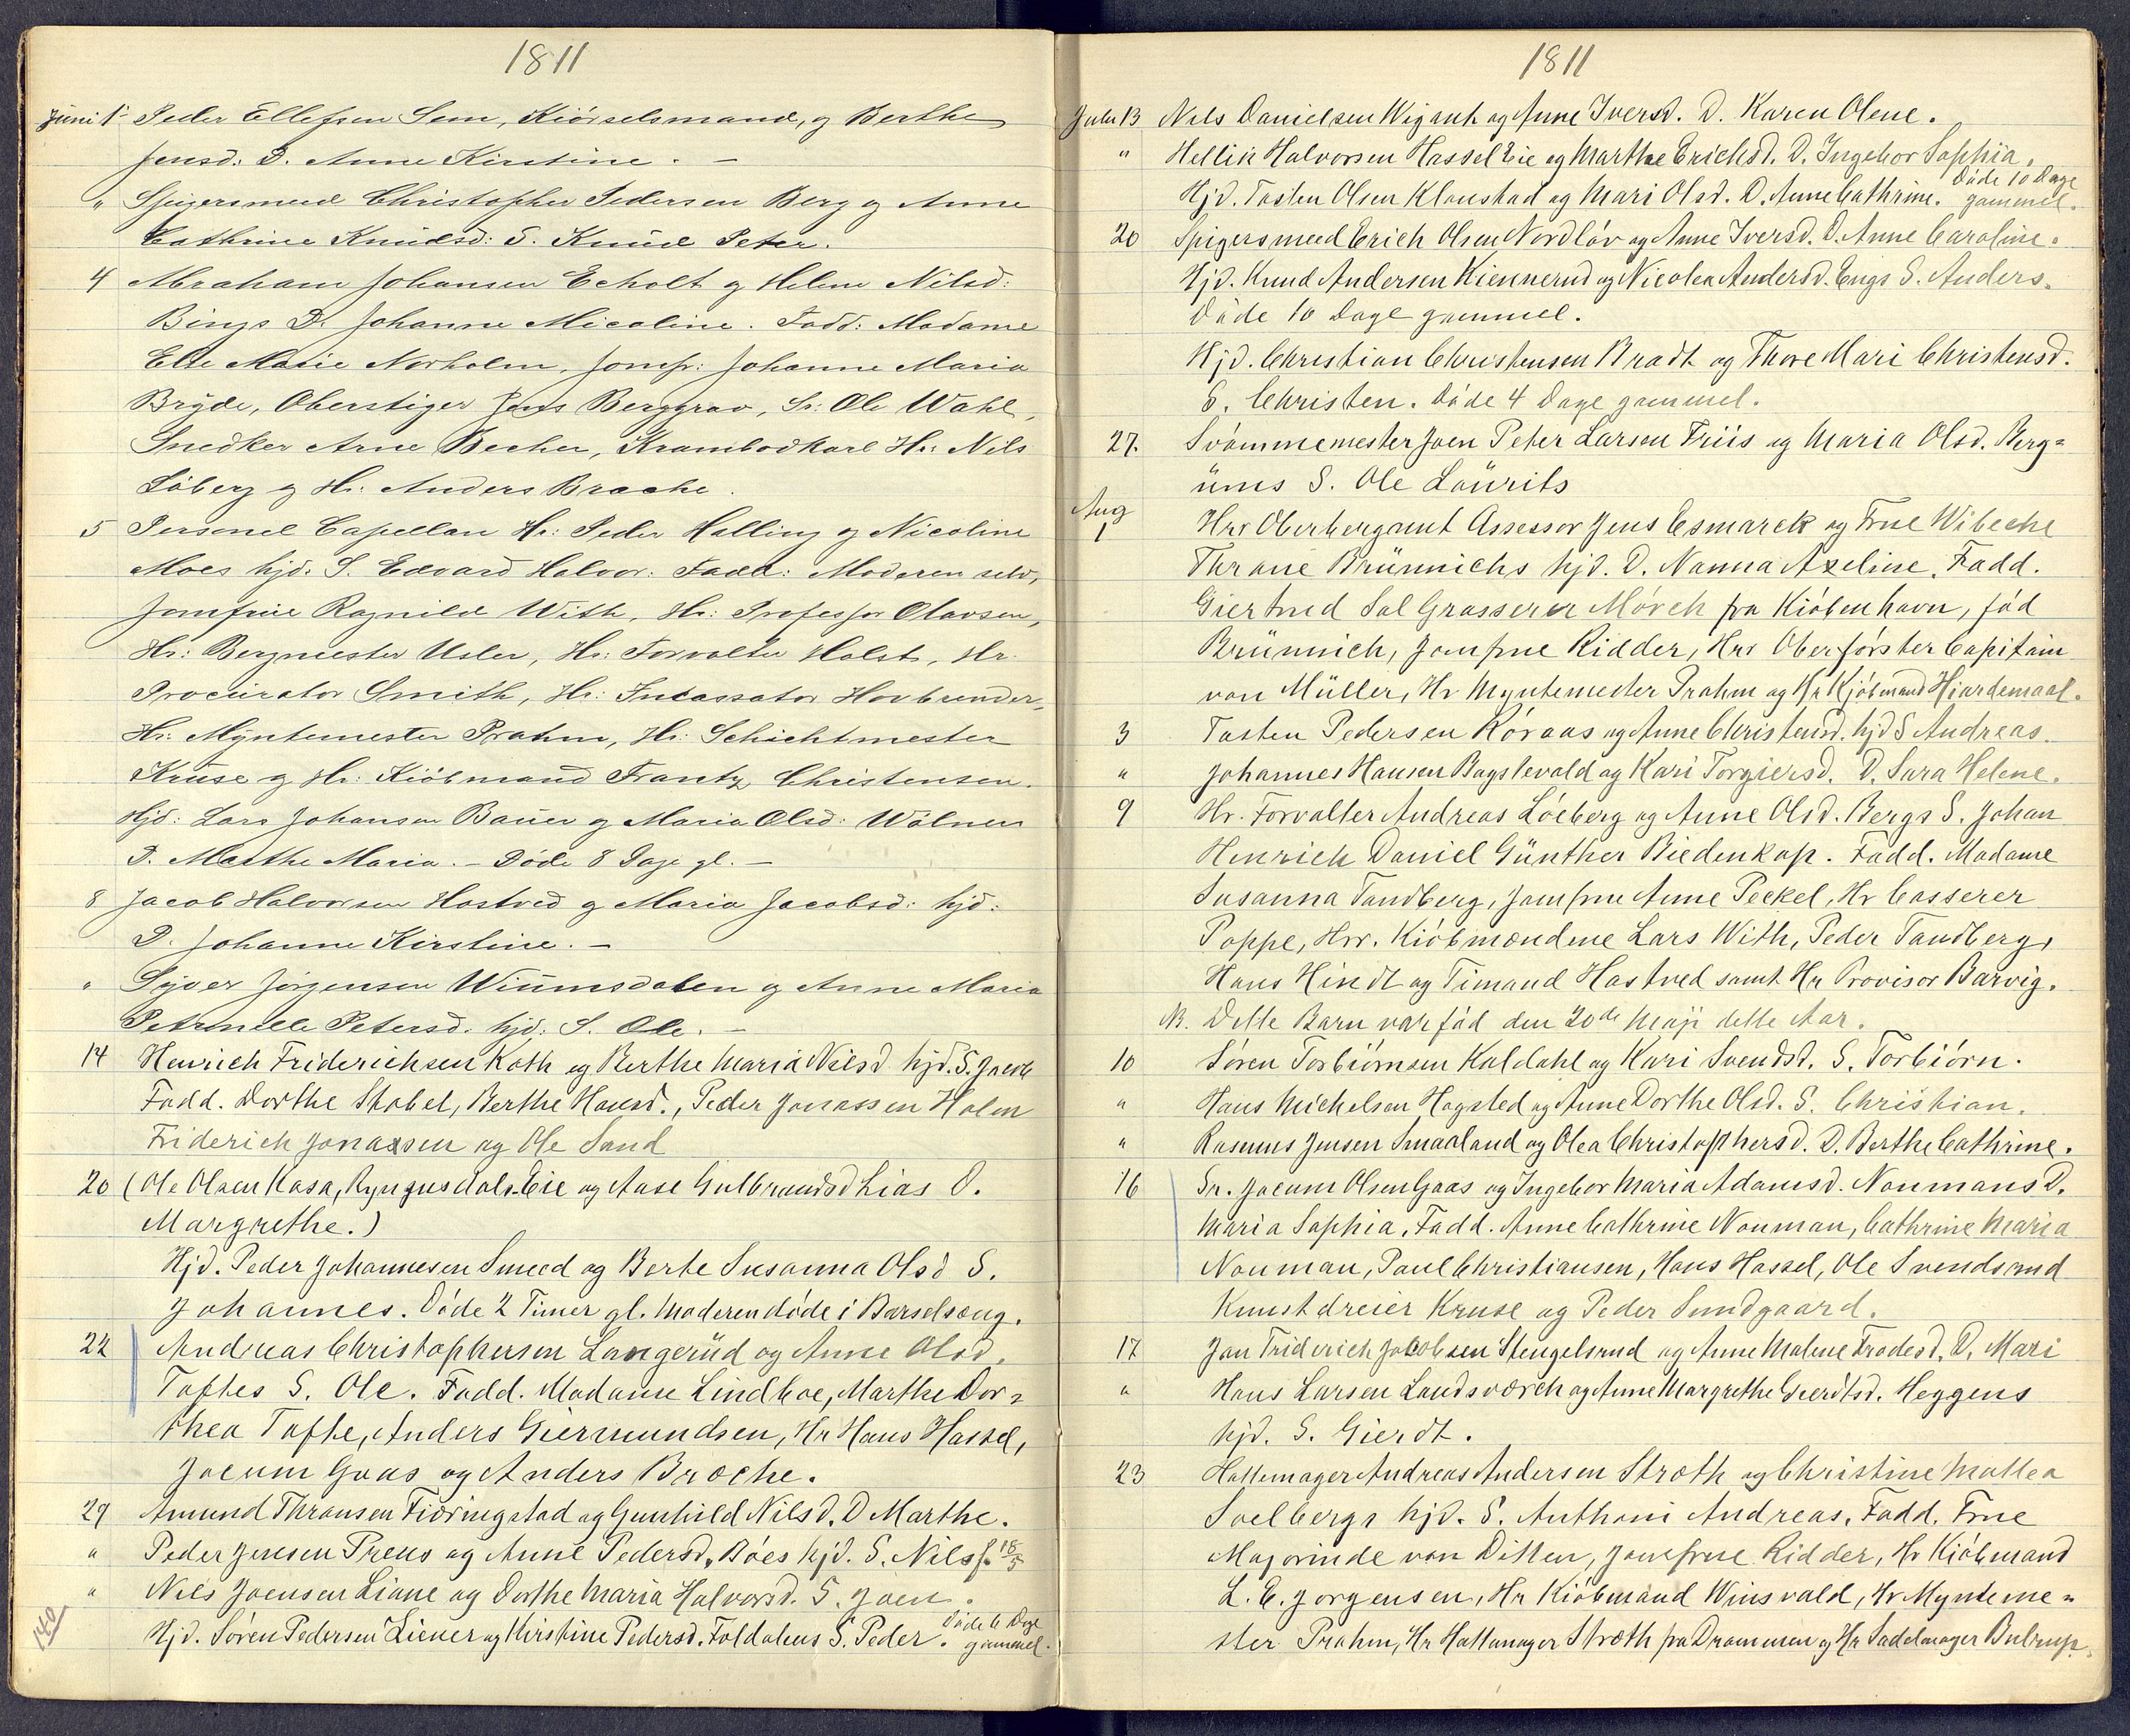 1811
Juni 1 Peder Ellefsen Sem, Kiörselsmand, og Berthe
Jensd: D. Anne Kirstine. —
" Spigersmed Christopher Pedersen Berg og Anne
Cathrine Knudsd: S. Knud Peter.
4 Abraham Johansen Echolt og Helene Nilsd:
Bings D. Johanne Micoline. Fadd: Madame
Else Marie Norholm, Jomfr: Johanne Maria
Bryde, Oberstiger Jens Berggrav, Sr: Ole Wahl,
Snedker Arne Becher, Krambodkarl Hr: Nils
Söberg og Hr: Anders Brache.
5 Personel Capellan Hr: Peder Halling og Nicoline
Moes hjd: S. Edvard Halvor: Fadd: Moderen selv,
Jomfrue Ragnild With, Hr: Professor Olavsen,
Hr: Bergmester Usler, Hr: Forvalter Holst, Hr.
Procurator Smith, Hr: Incassator Hovbrender,
Hr: Myntemester Prahm, Hr: Schichtmester
Kruse og Hr: Kiöbmand Frantz Christensen.
Hjd: Lars Johansen Bauer og Maria Olsd: Wölners
D. Marthe Maria. — Döde 8 Dage gl. —
8 Jacob Halvorsen Hostved og Maria Jacobsd: hjd:
D. Johanne Kirstine. —
" Syver Jörgensen Wiumsdalen og Anne Maria
Petrnelle Petersd. hjd. S. Ole. —
14 Henrich Friderichsen Koth og Berthe Maria Nilsd hjd. S. Jacob
Fadd. Dorthe Stabel, Berthe Hansd., Peder Jonassen Holm
Friderich Jonassen og Ole Sand
20 (Ole Olsen Kasa, Ryngusdals Eie og Aase Gulbrandsd Lias D.
Margrethe.)
Hjd. Peder Johannesen Smed og Berte Susanna Olsd S.
Johannes. Döde 2 Timer gl. Moderen döde i Barselseng.
22 Andreas Christophersen Langerüd og Anne Olsd.
Toftes S. Ole. Fadd. Madame Lindboe, Marthe Dor=
thea Tofte, Anders Giermundsen, Hr Hans Hassel,
Jocum Gaas og Anders Broche.
29 Amund Thronsen Fiøringstad og Gunhild Nilsd. D Marthe.
" Peder Jensen Preus og Anne Pedersd. Böes hjd. S. Nils f. 18/5
" Nils Joensen Liane og Dorthe Maria Halvorsd. S. Joen.
Hjd. Sören Pedersen Liener og Kirstine Pedersd. Foldalens S. Peder. Döde 6 Dage
gammel.
140
1811
Julii 13 Nils Danielsen Wigant og Anne Iversd. D. Karen Olene.
" Hellik Halvorsen Hassel Eie og Marthe Erichsd. D. Ingebor Sophia.
Hjd. Tosten Olsen Klonstad og Mari Olsd. D. Anne Cathrine. Döde 10 Dage
gammel.
20 Spigersmed Erich Olsen Nordlöv og Anne Iversd. D. Anne Caroline.
Hjd. Knud Andersen Kiennerud og Nicolea Andersd. Engs S. Anders.
Döde 10 Dage gammel.
Hjd. Christian Christensen Bradt og Thore Mari Christensd.
S. Christen. Döde 4 Dage gammel.
27. Svömmemester Joen Peter Larsen Friis og Maria Olsd. Berg=
üms S. Ole Laurits
Aug
1 Hrr Oberbergamt Assessor Jens Esmarck og Frue Wibecke
Thrane Brünnichs hjd. D. Nanna Axeline. Fadd.
Giertrud Sal Grosserer Mörch fra Kiöbenhavn, föd
Brünnich, Jomfrue Ridder, Hrr Oberförster Capitain
von Müller, Hr Myntemester Prahm og Hr Kjöbmand Hiardemaal.
3 Tosten Pedersen Köraas og Anne Christensd. hjd S Andreas.
" Johannes Hansen Bagstevold og Kari Torgiersd. D. Sara Helene.
9 Hr. Forvalter Andreas Löeberg og Anne Olsd. Bergs S. Johan
Henrich Daniel Günther Biedenkap. Fadd. Madame
Susanna Tandberg, Jomfrue Anne Peckel, Hr Casserer
Poppe, Hrr. Kiöbmændene Lars With, Peder Tandberg,
Hans Hindt og Timand Hastved samt Hr Provisor Barvig.
NB. Dette Barn var föd den 20de Maji dette Aar.
10 Sören Torbiörnsen Kaldahl og Kari Svendsd. S. Torbiörn.
" Hans Michelsen Hagsted og Anne Dorthe Olsd. S. Christian.
" Rasmus Jensen Smaaland og Olea Christophersd. D. Berthe Cathrine.
16 Sr. Jocum Olsen Gaas og Ingebor Maria Adamsd. Noumans D.
Maria Sophia. Fadd. Anne Cathrine Nouman, Cathrine Maria
Nouman, Paul Christiansen, Hans Hassel, Ole Svendsrud
Kunstdreier Kruse og Peder Sundgaard.
17 Jan Friderich Jacobsen Stengelsrud og Anne Malene Frodesd. D. Mari
" Hans Larsen Landsværch og Anne Margrethe Gierdtsd. Heggens
hjd. S. Gierdt.
23 Hattemager Andreas Andersen Stroth og Christine Mattea
Soelbergs hjd. S. Anthoni Andreas. Fadd. Frue
Majorinde von Ditten, Jomfrue Ridder, Hr Kiöbmand
L. E. Jorgensen, Hr Kiöbmand Winsvald, Hr Mynteme=
ster Prahm, Hr Hattemager Stroth fra Drammen og Hr Sadelmager Bulrup.